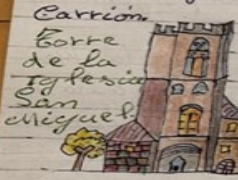 Carrión.
Torre
de la
Iglesia
San
Miguel